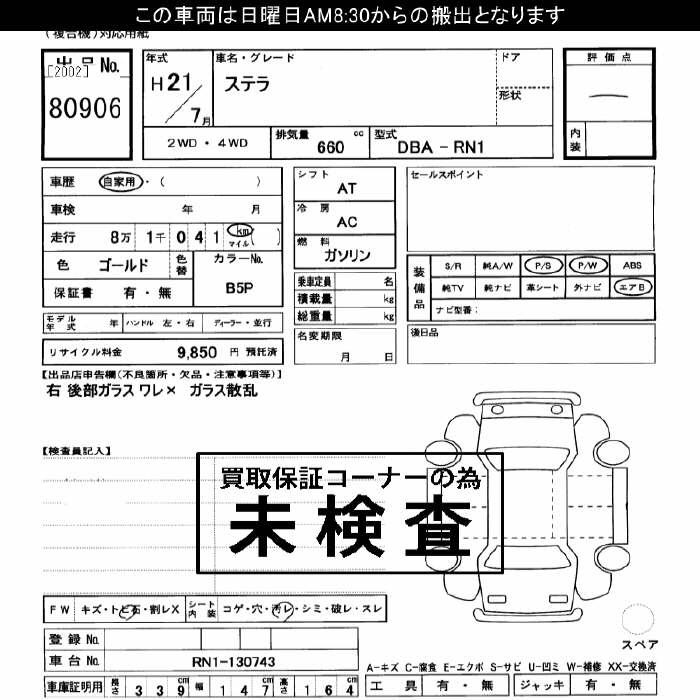 この車両は日曜日AM8:30からの搬出となります
(複合機)対応用紙
出品No.
[2002]
80906
年式
H21/7月
車名・グレード
ステラ
ドア
形状
評価点
内装
2WD・4WD
排気量 660 cc
型式 DBA－RN1
車歴 自家用・( )
車検 年 月
走行 8万 1千 0 4 1 km マイル ( )
色 ゴールド
色替
カラーNo.
B5P
保証書 有・無
シフト
AT
冷房
AC
燃料
ガソリン
乗車定員 名
積載量 kg
総重量 kg
セールスポイント
装備品
S/R 純A/W P/S P/W ABS
純TV 純ナビ 革シート 外ナビ エアB
ナビ型番:
モデル年式 年 ハンドル 左・右 ディーラー・並行
名変期限
月 日
後日品
リサイクル料金 9,850 円 預託済
【出品店申告欄(不良箇所・欠品・注意事項等)】
右 後部ガラス ワレ× ガラス散乱
【検査員記入】
買取保証コーナーの為
未検査
FW キズ・トビ石・割レX
シート内装 コゲ・穴・汚レ・シミ・破レ・スレ
登録No.
車台No. RN1-130743
スペア
A-キズ C-腐食 E-エクボ S-サビ U-凹ミ W-補修 XX-交換済
車庫証明用 長さ 3 3 9 cm 幅 1 4 7 cm 高さ 1 6 4 cm
工具 有・無 ジャッキ 有・無